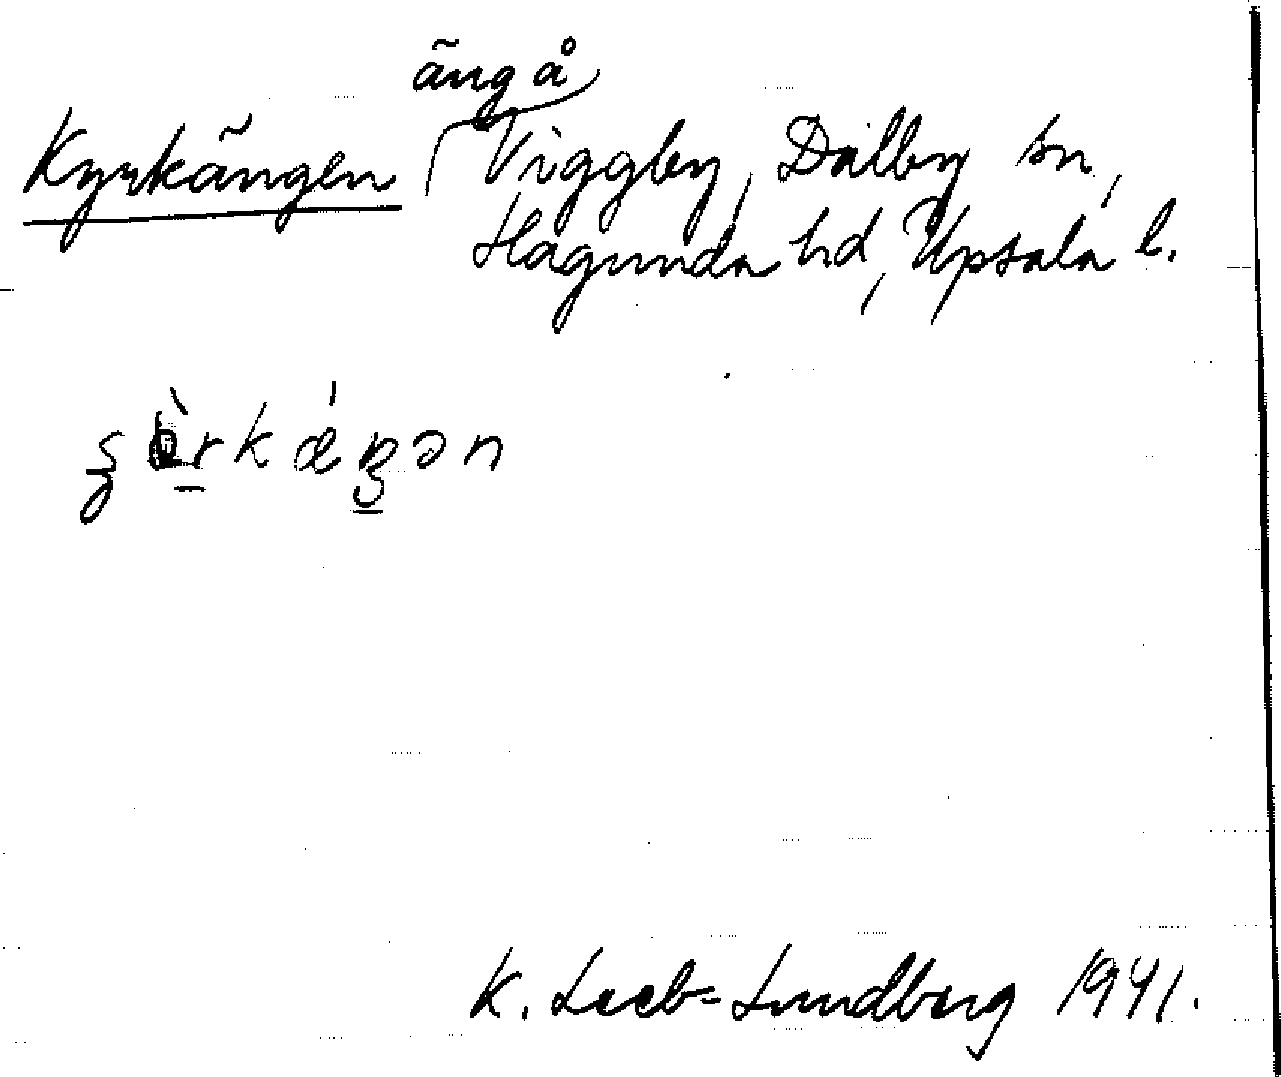 äng å
Kyrkängen Viggby, Dalby sn,
Hagunda hd, Upsala l.
K. Leeb-Lundberg 1941.